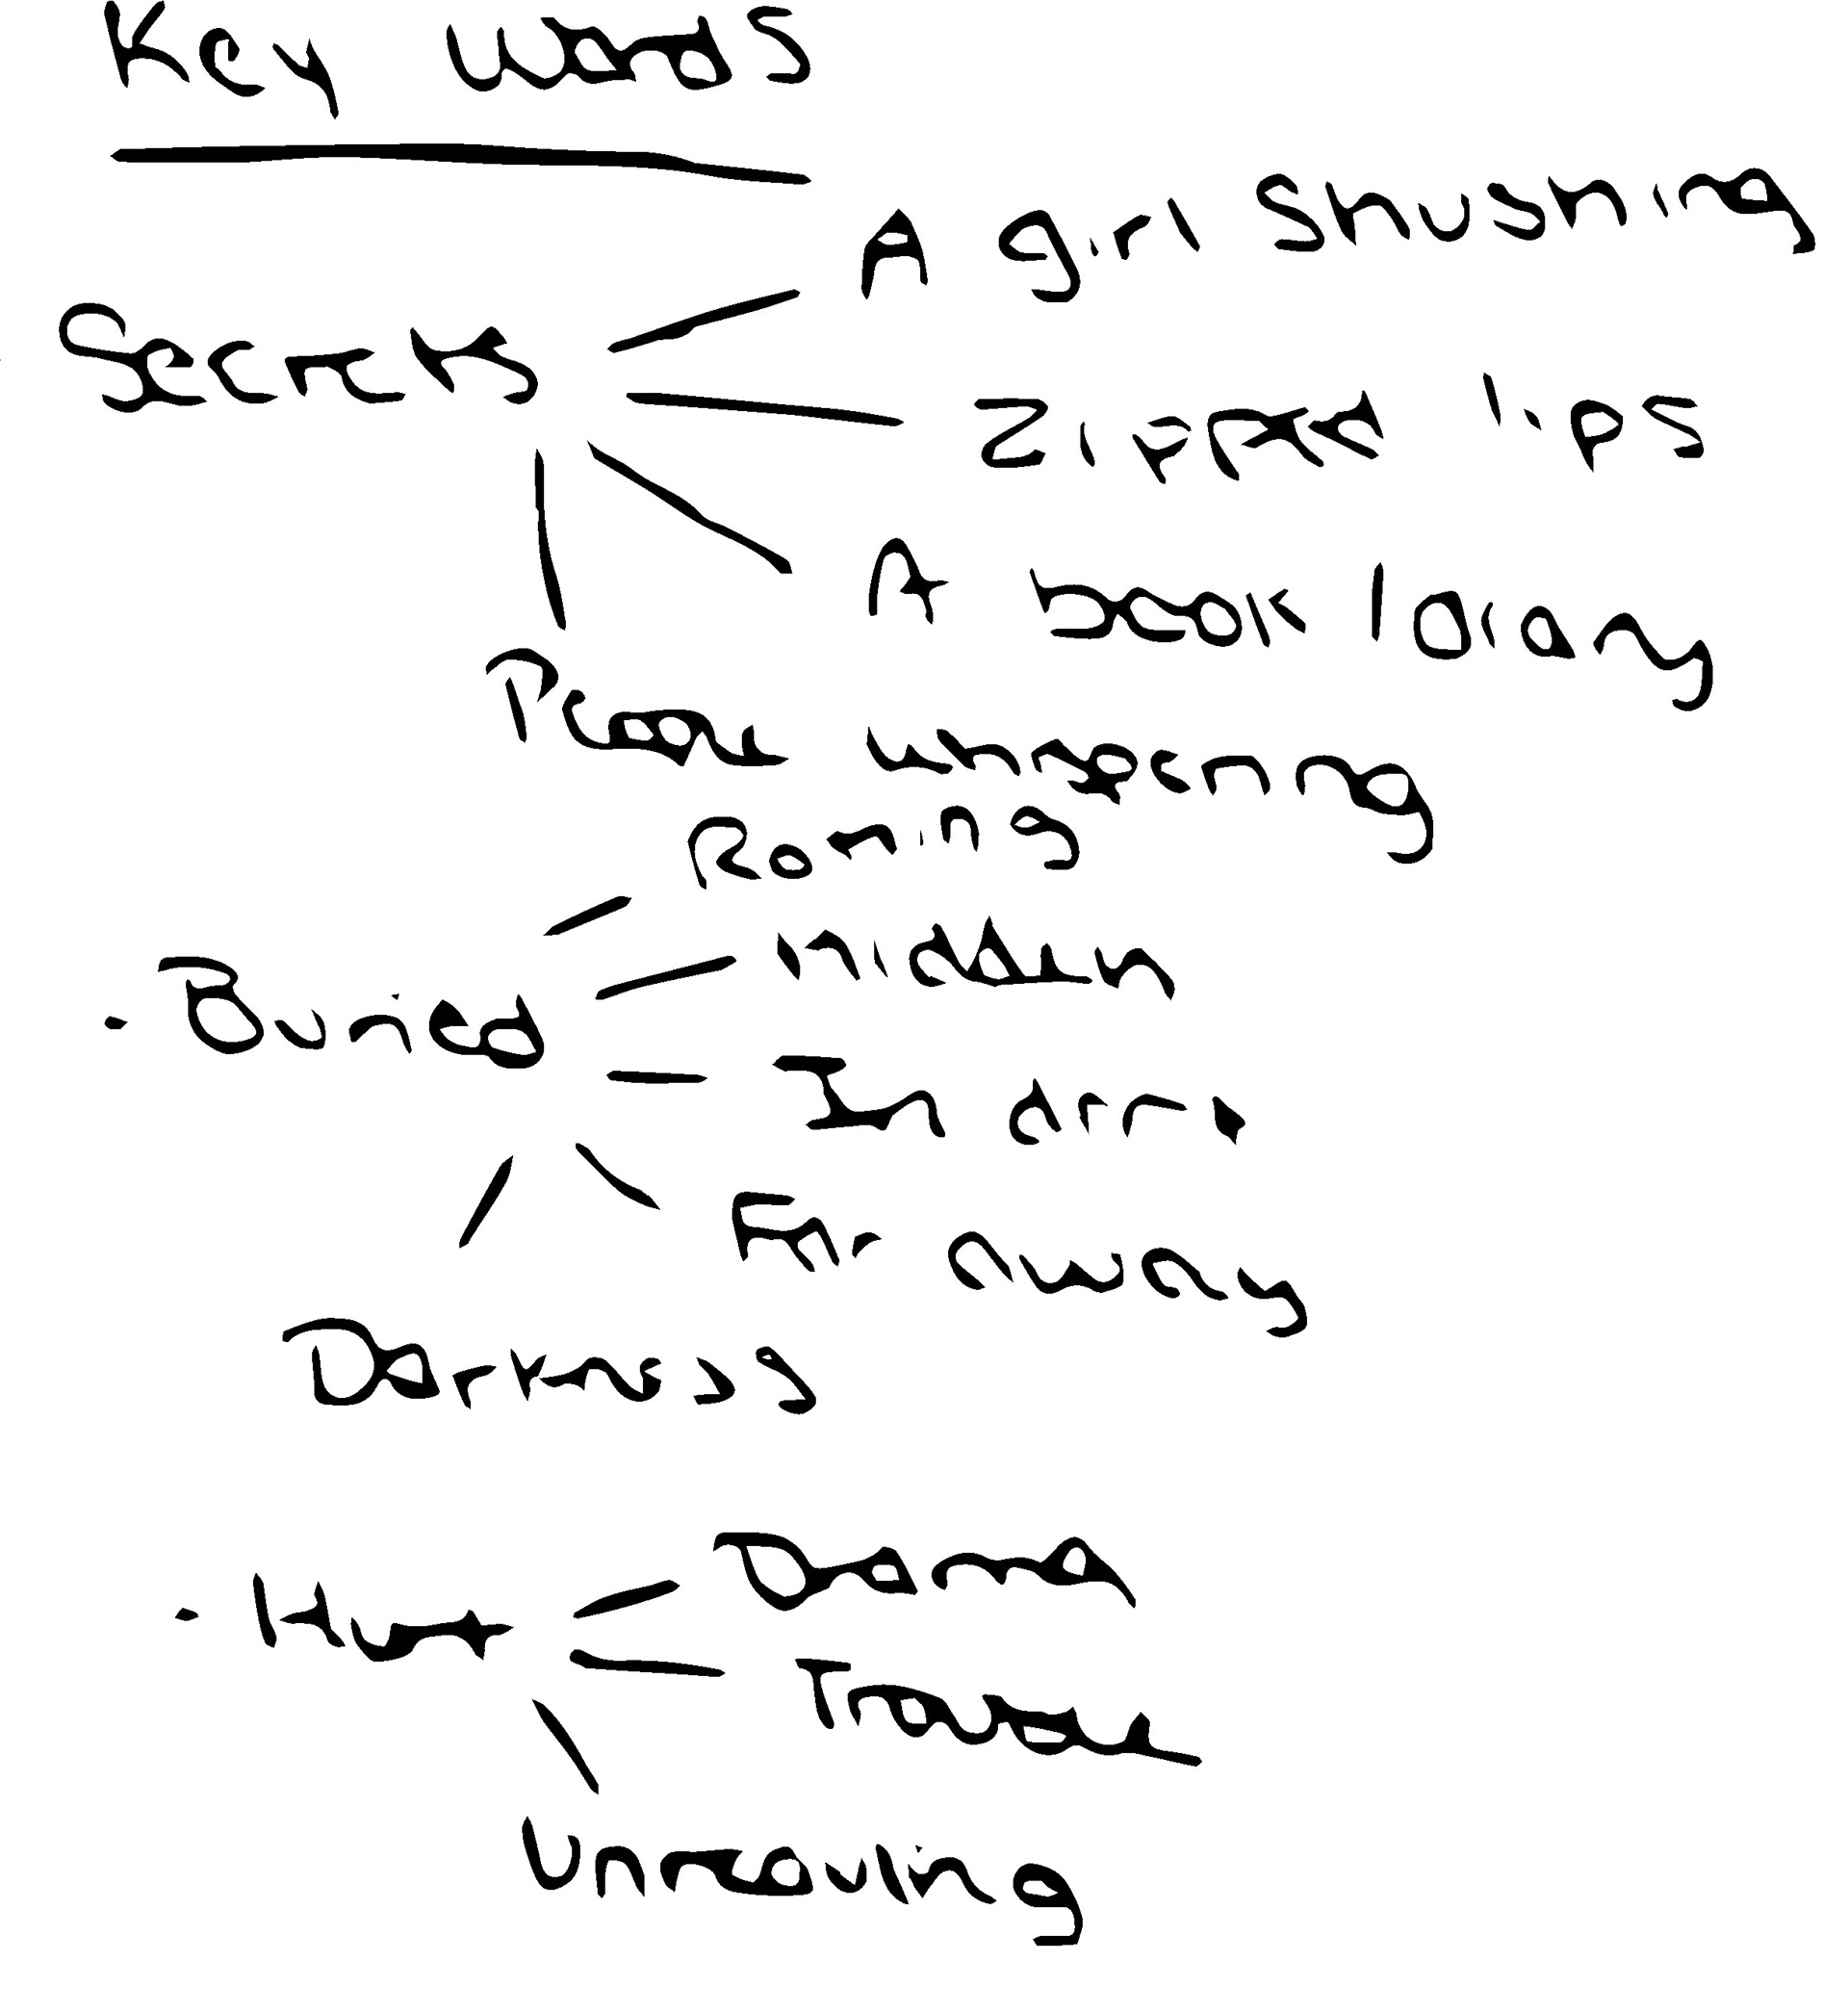 Key words
A girl shushing
Secrets
Zipped lips
A book / diary
People whispering
Roming
Hidden
· Buried
In dirt
Far away
Darkness
Drama
· Hurt
Trouble
Unreavling